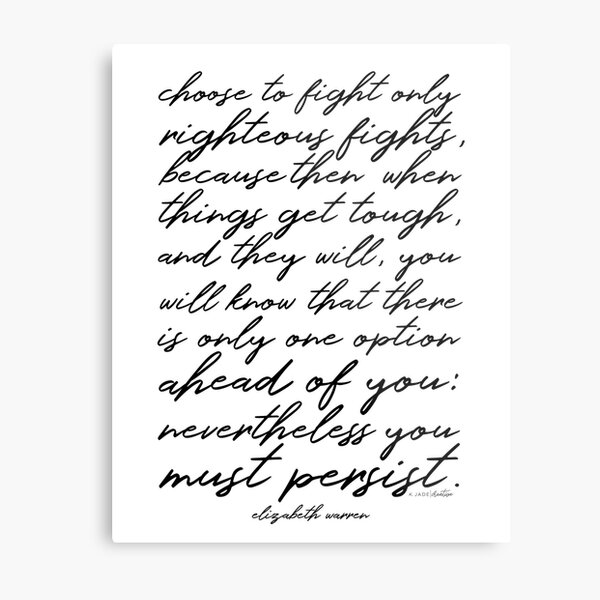 choose to fight only
righteous fights,
because then when
things get tough,
and they will, you
will know that there
is only one option
ahead of you:
nevertheless you
must persist.
K.JADE|creative
elizabeth warren